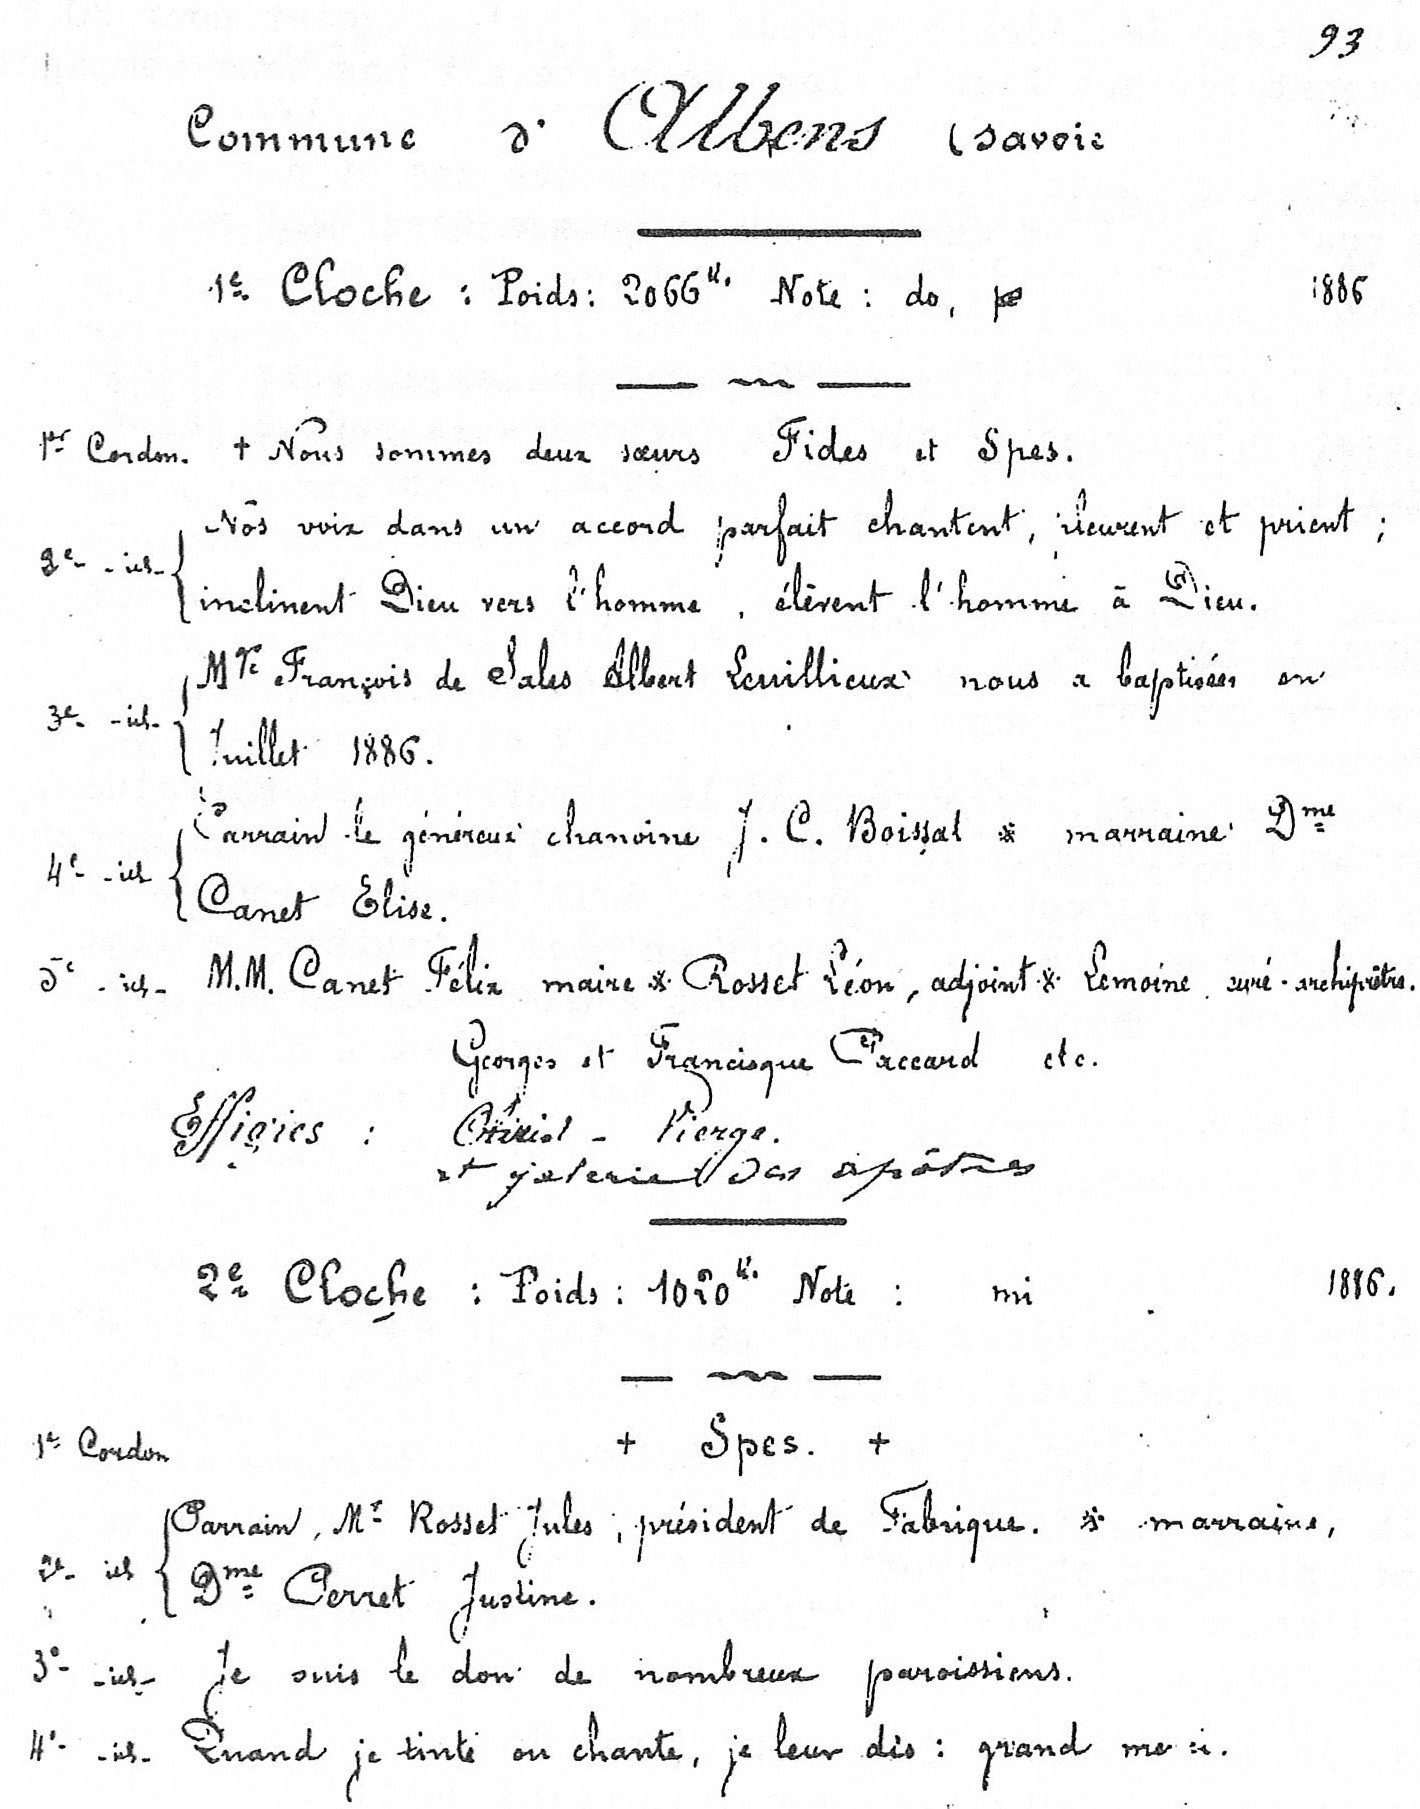 93
Commune d' Albens (Savoie
1re Cloche : Poids : 2066 k. Note : do, 1886
1er Cordon. + Nous sommes deux sœurs Fides et Spes.
2e - id - Nos voix dans un accord parfait chantent, pleurent et prient ;
inclinent Dieu vers l'homme, élèvent l'homme à Dieu.
3e - id - Mgr François de Sales Albert Leuillieux nous a baptisées en
Juillet 1886.
4e - id Parrain le généreux chanoine J. C. Boissat * marraine Dme
Canet Elise.
5e - id - M.M. Canet Félix maire * Rosset Léon, adjoint * Lemoine curé-archiprêtre.
Georges et Francisque Paccard etc.
Effigies : Christ - Vierge.
et des apôtres
2e Cloche : Poids : 1020 k. Note : mi 1886.
1er Cordon + Spes. +
2e id Parrain, Mr Rosset Jules, président de Fabrique. * marraine,
Dme Perret Justine.
3e - id - Je suis le don de nombreux paroissiens.
4e - id - Quand je tinte ou chante, je leur dis : grand merci.